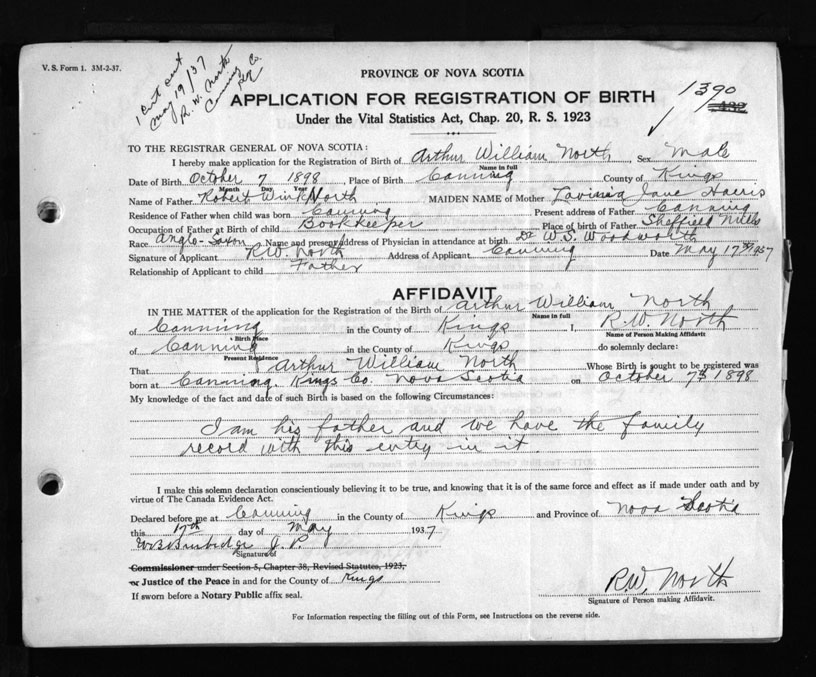 V. S. Form 1. 3M-2-37.
1 Cert out
May 19/37
R. W. North
Canning Co.
PROVINCE OF NOVA SCOTIA
APPLICATION FOR REGISTRATION OF BIRTH
1390
432
Under the Vital Statistics Act, Chap. 20, R. S. 1923
TO THE REGISTRAR GENERAL OF NOVA SCOTIA:
I hereby make application for the Registration of Birth of Arthur William North, Sex Male
Name in full
Date of Birth October 7 1898, Place of Birth Canning County of Kings
Month Day Year
Name of Father Robert Wink North MAIDEN NAME of Mother Lavinia Jane Harris
Residence of Father when child was born Canning Present address of Father Canning
Occupation of Father at Birth of child Bookkeeper Place of birth of Father Sheffield Mills
Race Anglo-Saxon Name and present address of Physician in attendance at birth Dr W.S. Woodworth
Signature of Applicant R.W. North Address of Applicant Canning Date May 17th 1937
Relationship of Applicant to child Father
AFFIDAVIT
IN THE MATTER of the application for the Registration of the Birth of Arthur William North
Name in full
of Canning in the County of Kings I, R.W. North
Birth Place Name of Person Making Affidavit
of Canning in the County of Kings do solemnly declare:
Present Residence
That Arthur William North Whose Birth is sought to be registered was
born at Canning Kings Co. Nova Scotia on October 7th 1898
My knowledge of the fact and date of such Birth is based on the following Circumstances:
I am his father and we have the family
record with this entry in it.
I make this solemn declaration conscientiously believing it to be true, and knowing that it is of the same force and effect as if made under oath and by
virtue of The Canada Evidence Act.
Declared before me at Canning in the County of Kings and Province of Nova Scotia
this 17th day of May 1937
J. P.
Signature of
Commissioner under Section 5, Chapter 38, Revised Statutes, 1923,
or Justice of the Peace in and for the County of Kings
If sworn before a Notary Public affix seal.
R.W. North
Signature of Person making Affidavit.
For Information respecting the filling out of this Form, see Instructions on the reverse side.